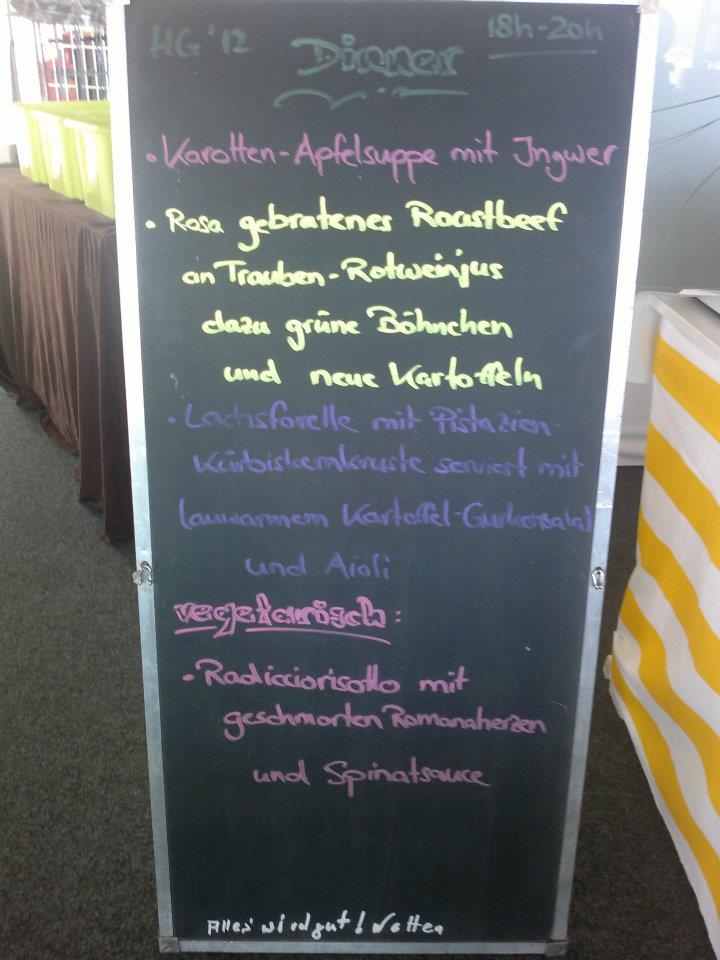 HG '12
Dinner
18h-20h
• Karotten-Apfelsuppe mit Ingwer
• Rosa gebratenes Roastbeef
an Trauben-Rotweinjus
dazu grüne Böhnchen
und neue Kartoffeln
• Lachsforelle mit Pistazien-
Kürbiskernkruste serviert mit
lauwarmem Kartoffel-Gurkensalat
und Aioli
vegetarisch:
• Radicciorisotto mit
geschmorten Romanaherzen
und Spinatsauce
Alles wird gut! Wetten